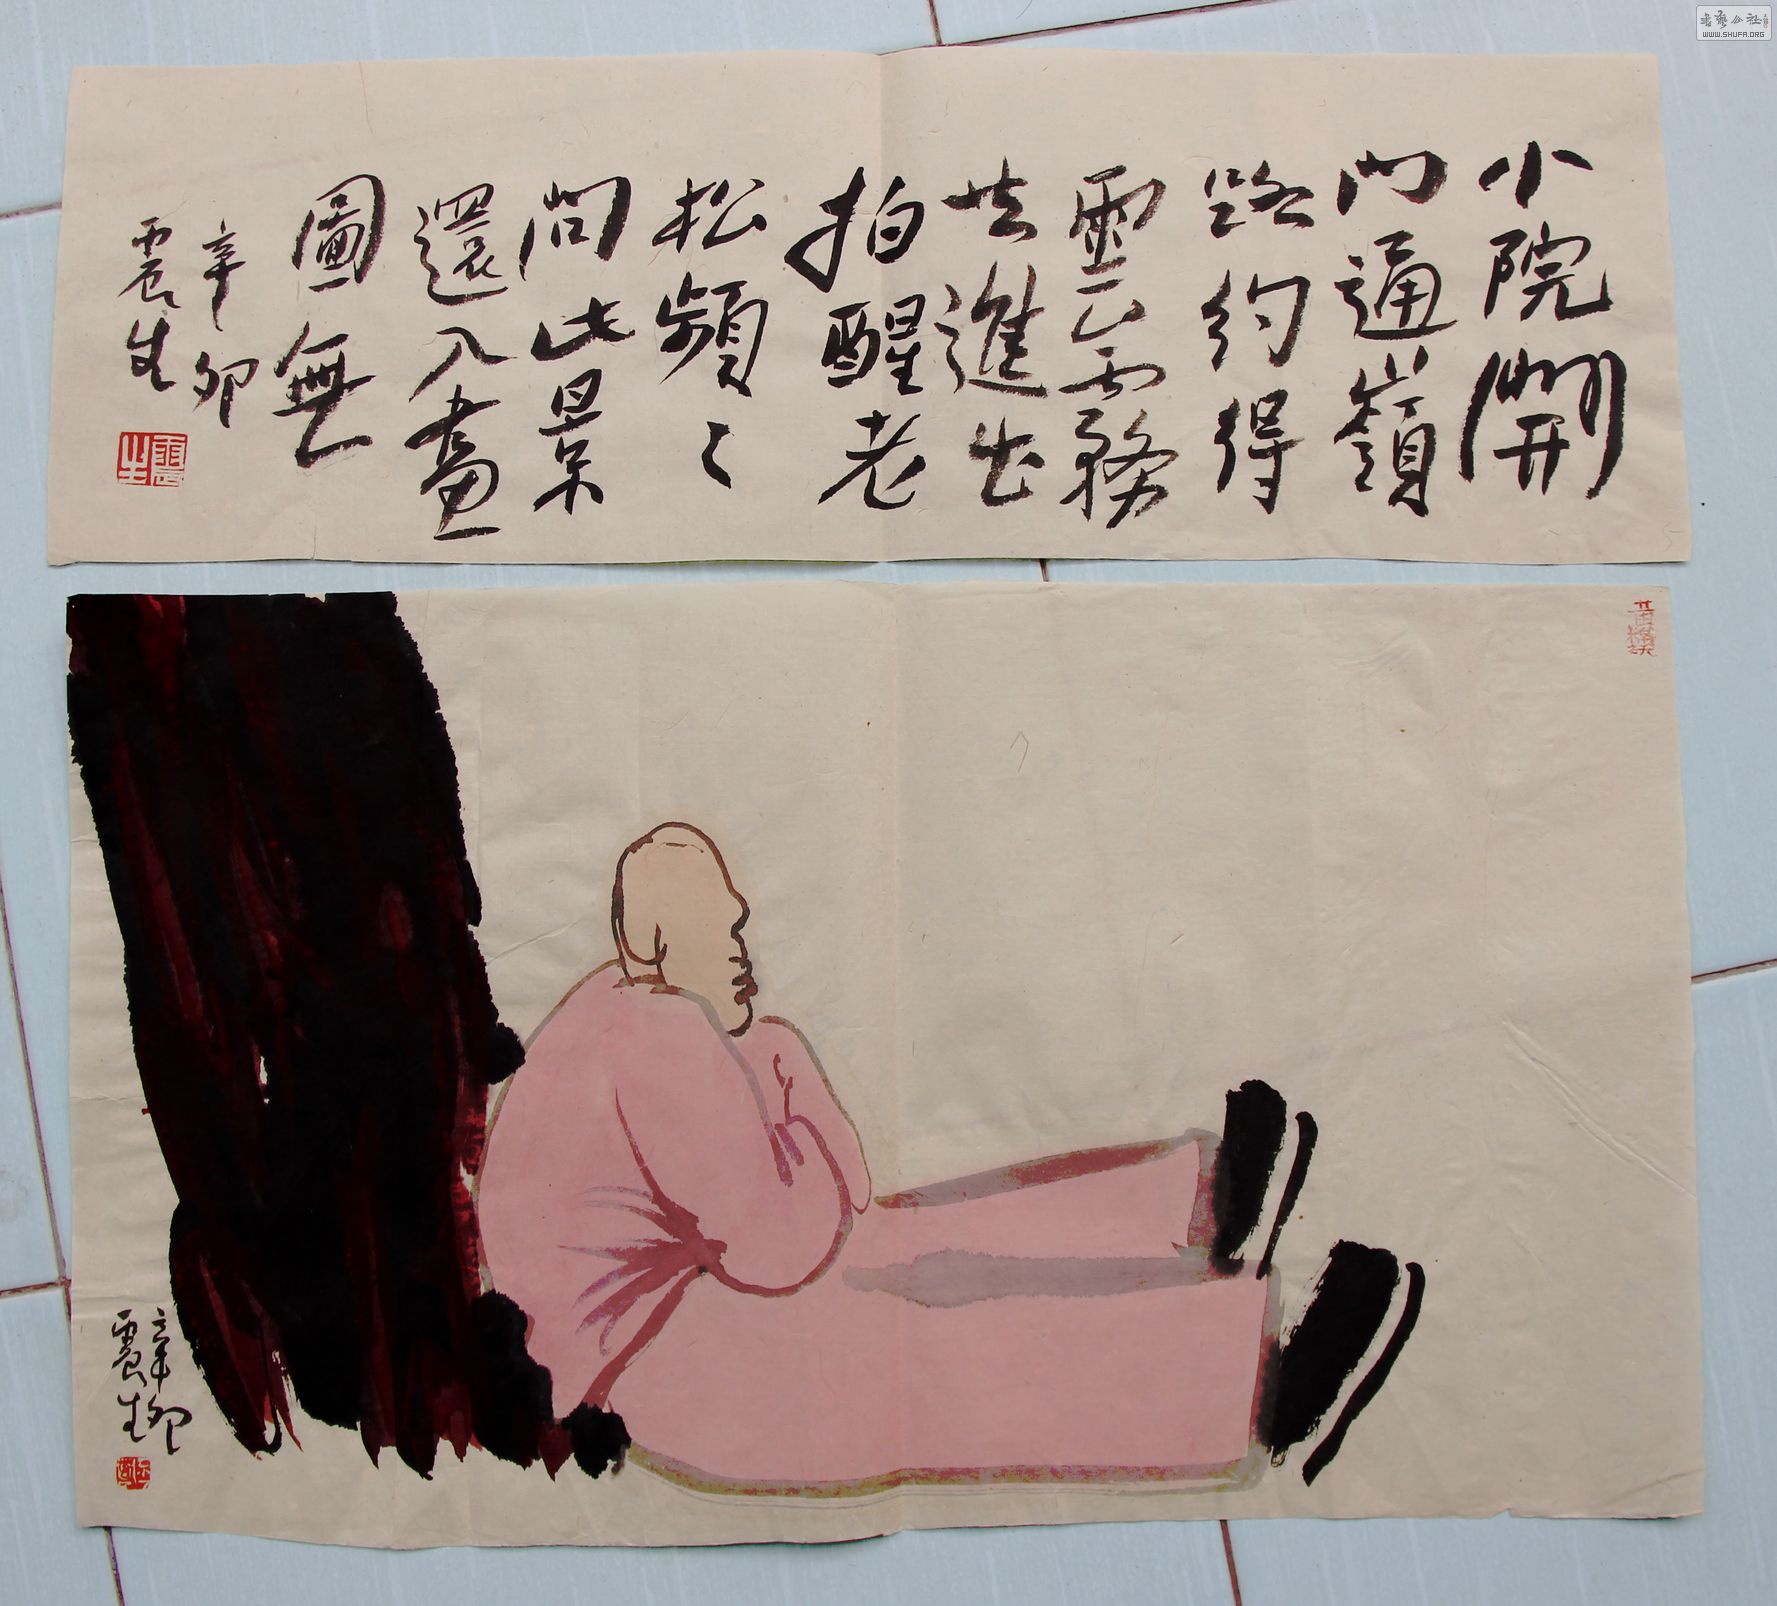 小院開
門通嶺
路約得
雲霧
共進出
拍醒老
松頻〻
問此景
還入畫
圖無
辛卯
震生
震生
辛卯
震生
書藝公社
WWW.SHUFA.ORG